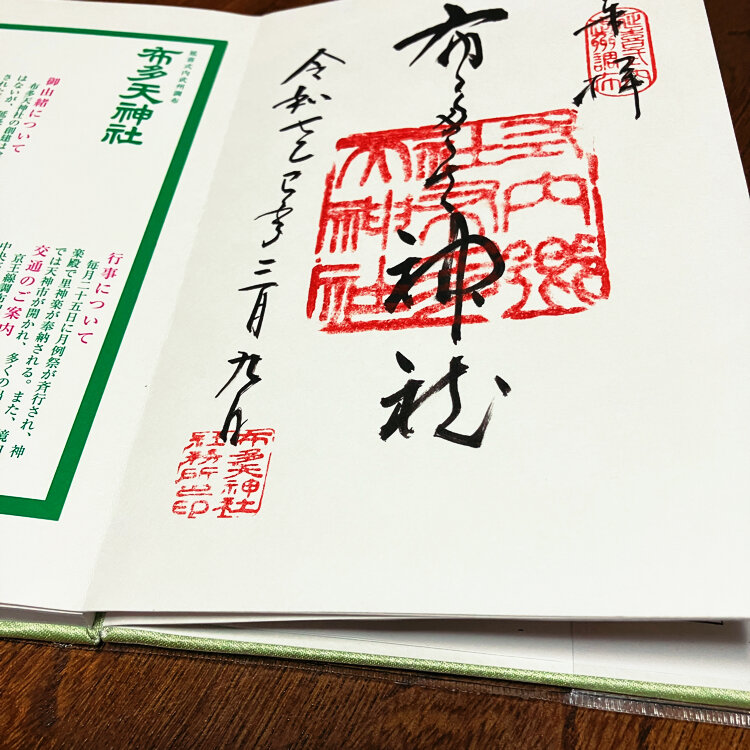 奉拝
延喜式内
武州調布
布多天神社
式内郷社布多天神社
令和七乙巳年三月九日
布多天神社
社務所之印
延喜式内武州調布
布多天神社
御由緒について
布多天神社の創建は
はないが、延
された
行事について
毎月二十五日に月例祭が斉行され、神
楽殿で里神楽が奉納される。また、境内
では天神市が開かれ、多くの
交通のご案内
京王線調布
中央